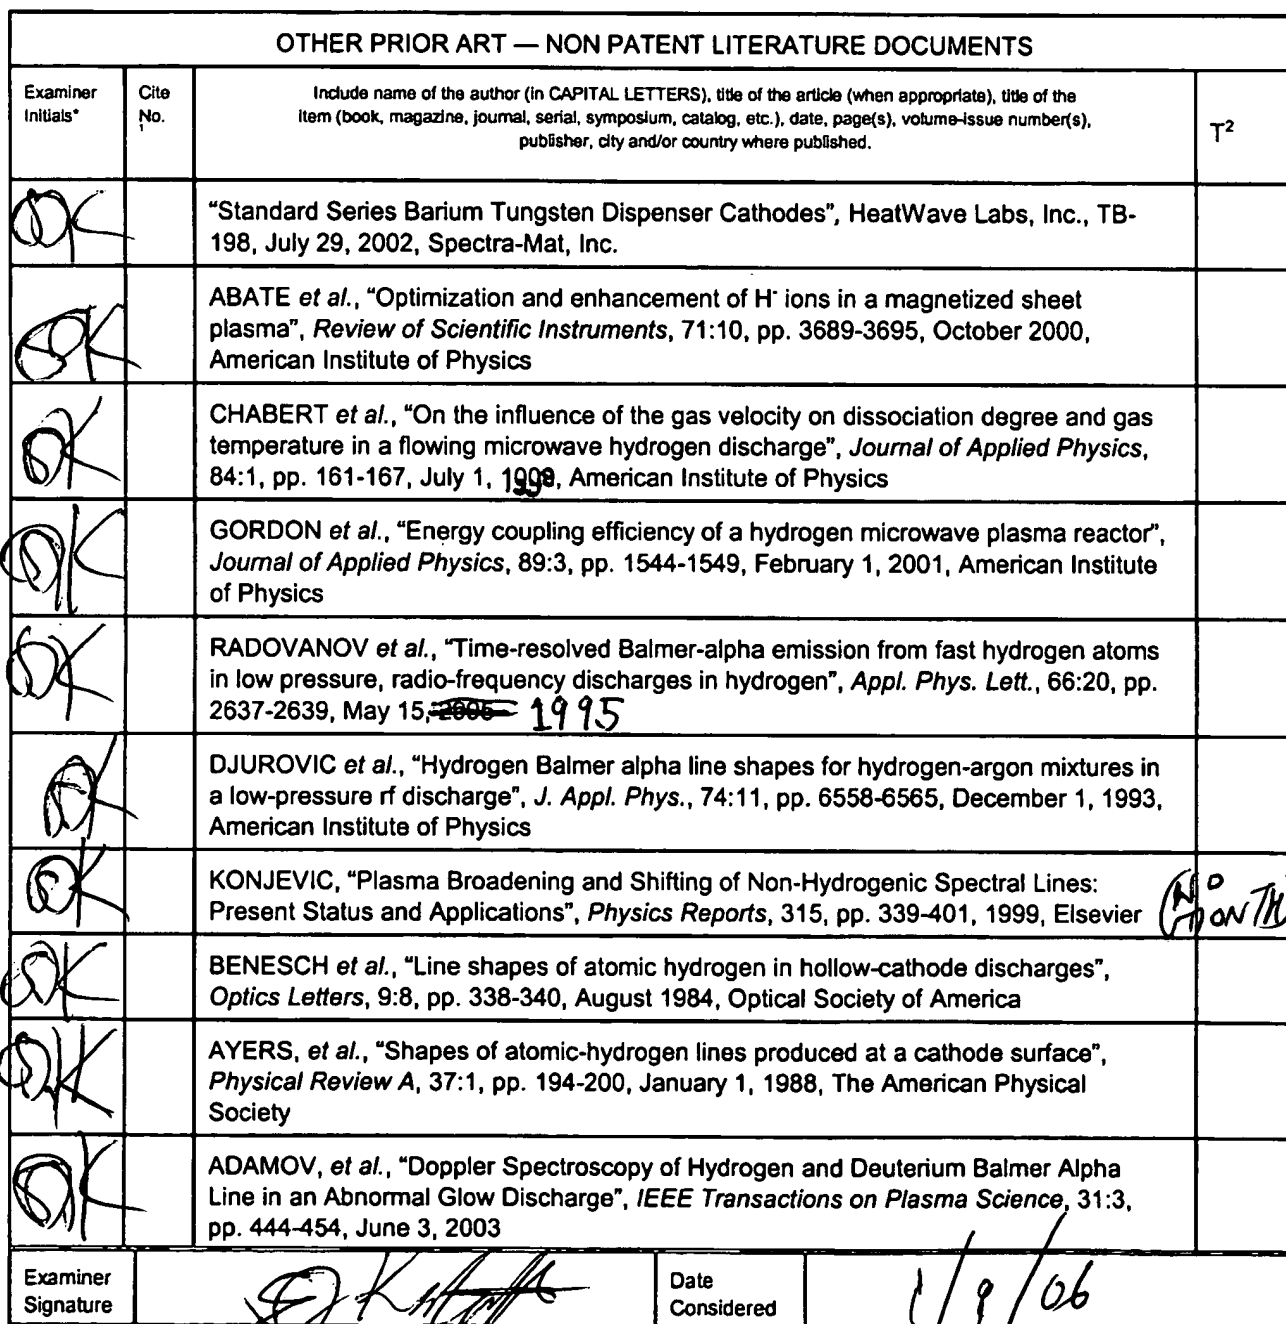 OTHER PRIOR ART — NON PATENT LITERATURE DOCUMENTS
Examiner
Initials*
Cite
No.
1
Include name of the author (in CAPITAL LETTERS), title of the article (when appropriate), title of the
item (book, magazine, journal, serial, symposium, catalog, etc.), date, page(s), volume-issue number(s),
publisher, city and/or country where published.
T²
"Standard Series Barium Tungsten Dispenser Cathodes", HeatWave Labs, Inc., TB-
198, July 29, 2002, Spectra-Mat, Inc.
ABATE et al., "Optimization and enhancement of H⁻ ions in a magnetized sheet
plasma", Review of Scientific Instruments, 71:10, pp. 3689-3695, October 2000,
American Institute of Physics
CHABERT et al., "On the influence of the gas velocity on dissociation degree and gas
temperature in a flowing microwave hydrogen discharge", Journal of Applied Physics,
84:1, pp. 161-167, July 1, 1998, American Institute of Physics
GORDON et al., "Energy coupling efficiency of a hydrogen microwave plasma reactor",
Journal of Applied Physics, 89:3, pp. 1544-1549, February 1, 2001, American Institute
of Physics
RADOVANOV et al., "Time-resolved Balmer-alpha emission from fast hydrogen atoms
in low pressure, radio-frequency discharges in hydrogen", Appl. Phys. Lett., 66:20, pp.
2637-2639, May 15, 1995
DJUROVIC et al., "Hydrogen Balmer alpha line shapes for hydrogen-argon mixtures in
a low-pressure rf discharge", J. Appl. Phys., 74:11, pp. 6558-6565, December 1, 1993,
American Institute of Physics
KONJEVIC, "Plasma Broadening and Shifting of Non-Hydrogenic Spectral Lines:
Present Status and Applications", Physics Reports, 315, pp. 339-401, 1999, Elsevier
NO
MONTH
BENESCH et al., "Line shapes of atomic hydrogen in hollow-cathode discharges",
Optics Letters, 9:8, pp. 338-340, August 1984, Optical Society of America
AYERS, et al., "Shapes of atomic-hydrogen lines produced at a cathode surface",
Physical Review A, 37:1, pp. 194-200, January 1, 1988, The American Physical
Society
ADAMOV, et al., "Doppler Spectroscopy of Hydrogen and Deuterium Balmer Alpha
Line in an Abnormal Glow Discharge", IEEE Transactions on Plasma Science, 31:3,
pp. 444-454, June 3, 2003
Examiner
Signature
Date
Considered
1/9/06